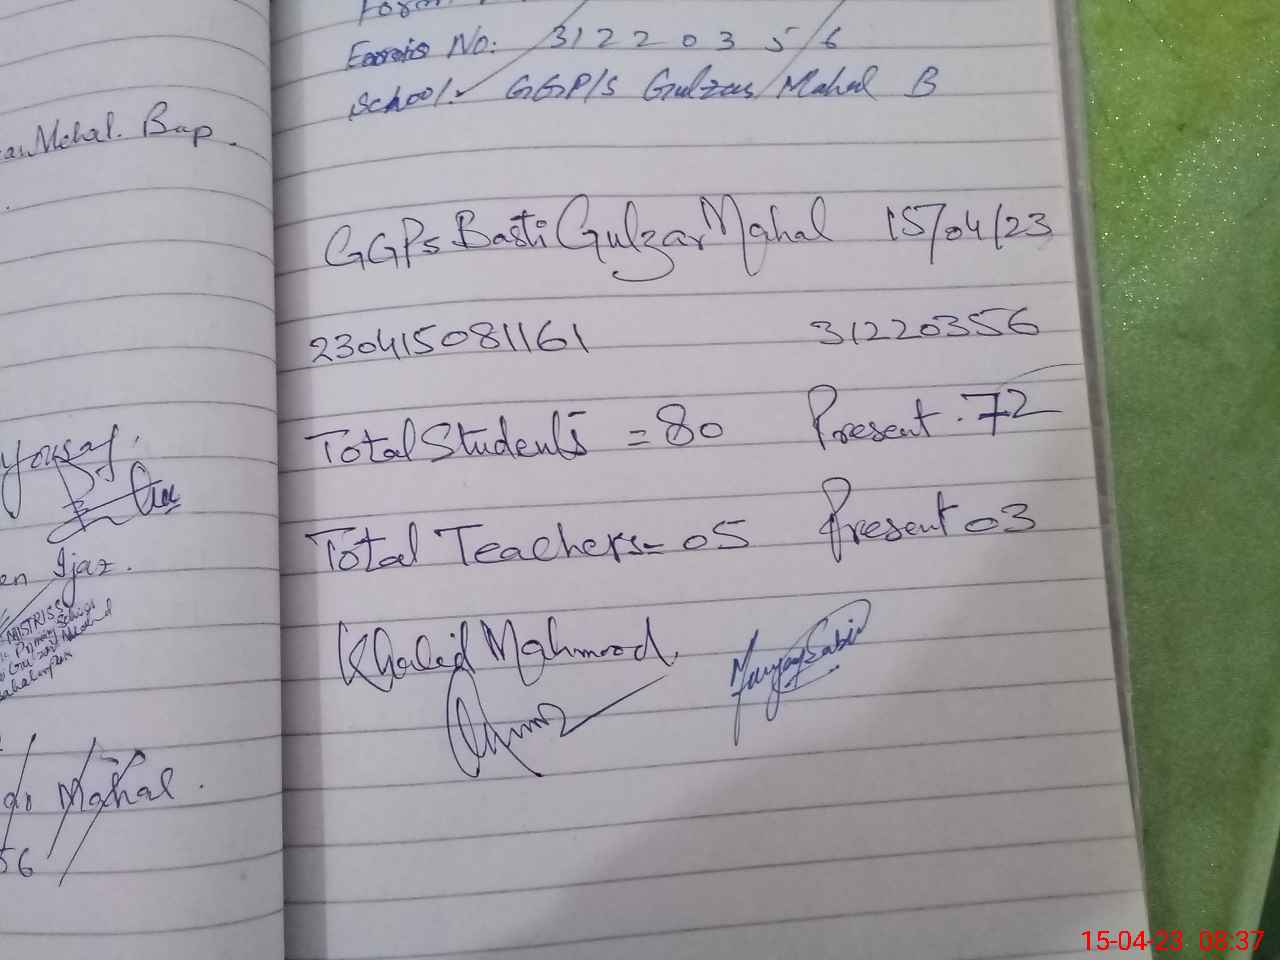 ar Mehal. Bwp.
Yousaf.
en Ijaz.
MISTRISS
Primary School
Mahal.
56
Form
Emis No: 3 1 2 2 0 3 5 6
School: GGP/S Gulzar Mahal B
GGPS Basti Gulzar Mahal 15/04/23
230415081161 31220356
Total Students = 80 Present. 72
Total Teachers = 05 Present 03
Khalid Mahmood
15-04-23 08:37